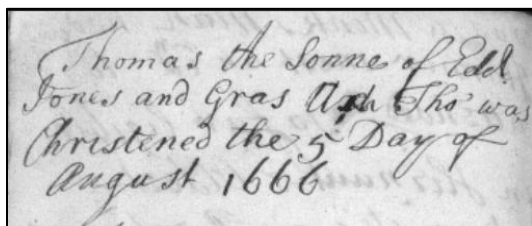 Thomas the Sonne of Edd.
Jones and Gras Tho was
Christened the 5 Day of
August 1666